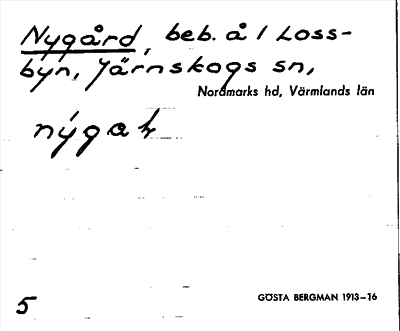 Nygård, beb. å 1 Loss-
byn, Järnskogs sn,
Nordmarks hd, Värmlands län
5
GÖSTA BERGMAN 1913–16